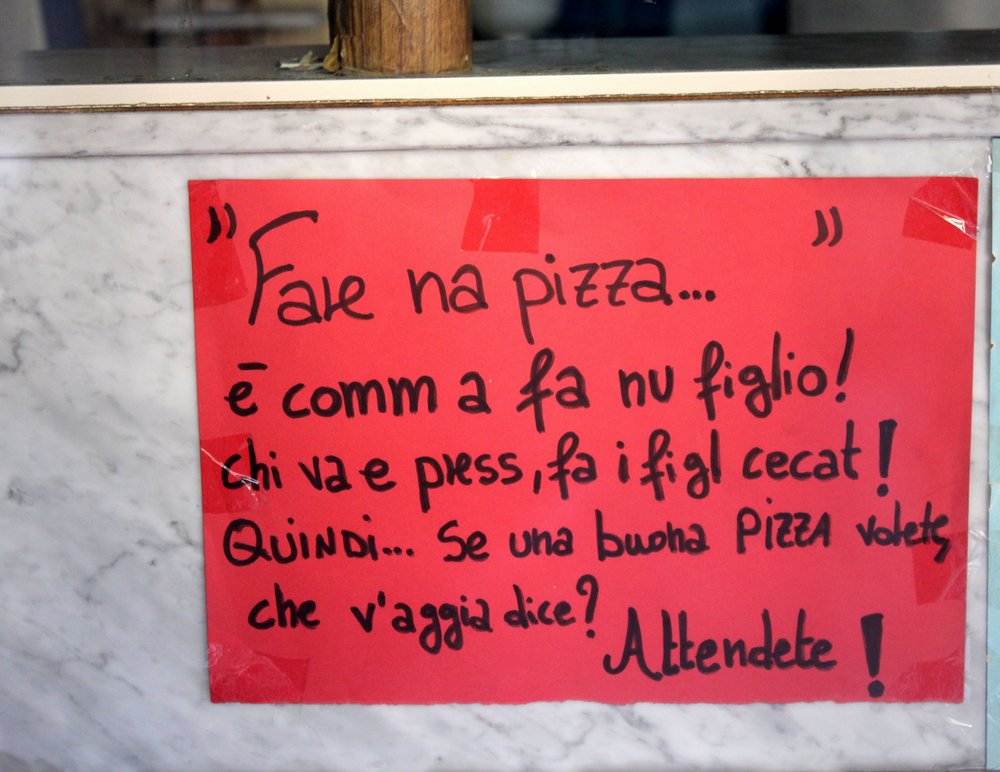 " Fare na pizza... "
ē comm a fa nu figlio!
chi va e press, fa i figl cecat!
QUINDI... Se una buona PIZZA volete,
che v'aggia dice?
Attendete!